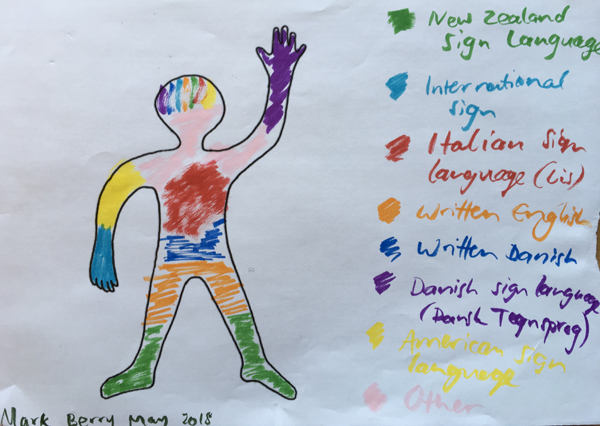 New Zealand
Sign Language
International
sign
Italian Sign
language (Lis)
Written English
Written Danish
Danish sign language
(Dansk Tegnsprog)
American sign
language
Other
Mark Berry May 2018